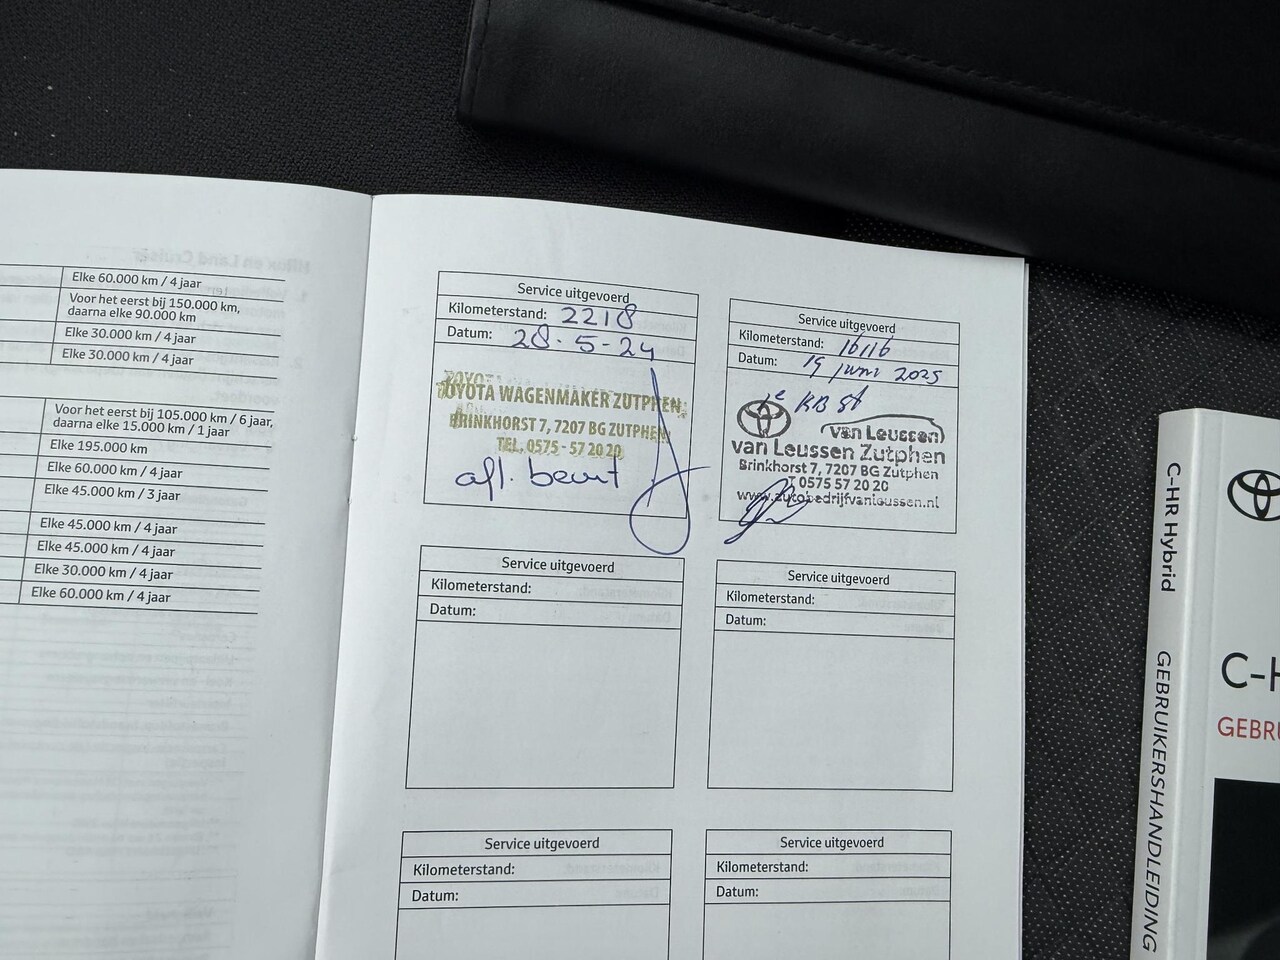 Elke 60.000 km / 4 jaar
Voor het eerst bij 150.000 km,
daarna elke 90.000 km
Elke 30.000 km / 4 jaar
Elke 30.000 km / 4 jaar
Voor het eerst bij 105.000 km / 6 jaar,
daarna elke 15.000 km / 1 jaar
Elke 195.000 km
Elke 60.000 km / 4 jaar
Elke 45.000 km / 3 jaar
Elke 45.000 km / 4 jaar
Elke 45.000 km / 4 jaar
Elke 30.000 km / 4 jaar
Elke 60.000 km / 4 jaar
Service uitgevoerd
Kilometerstand: 2218
Datum: 28-5-24
TOYOTA WAGENMAKER ZUTPHEN
BRINKHORST 7, 7207 BG ZUTPHEN
TEL. 0575 - 57 20 20
afl. beurt
Service uitgevoerd
Kilometerstand: 16116
Datum: 19 juni 2025
1e KB st
van Leussen
van Leussen Zutphen
Brinkhorst 7, 7207 BG Zutphen
T 0575 57 20 20
www.autobedrijfvanleussen.nl
Service uitgevoerd
Kilometerstand:
Datum:
Service uitgevoerd
Kilometerstand:
Datum:
Service uitgevoerd
Kilometerstand:
Datum:
Service uitgevoerd
Kilometerstand:
Datum:
C-HR Hybrid
GEBRUIKERSHANDLEIDING
C-H
GEBRU